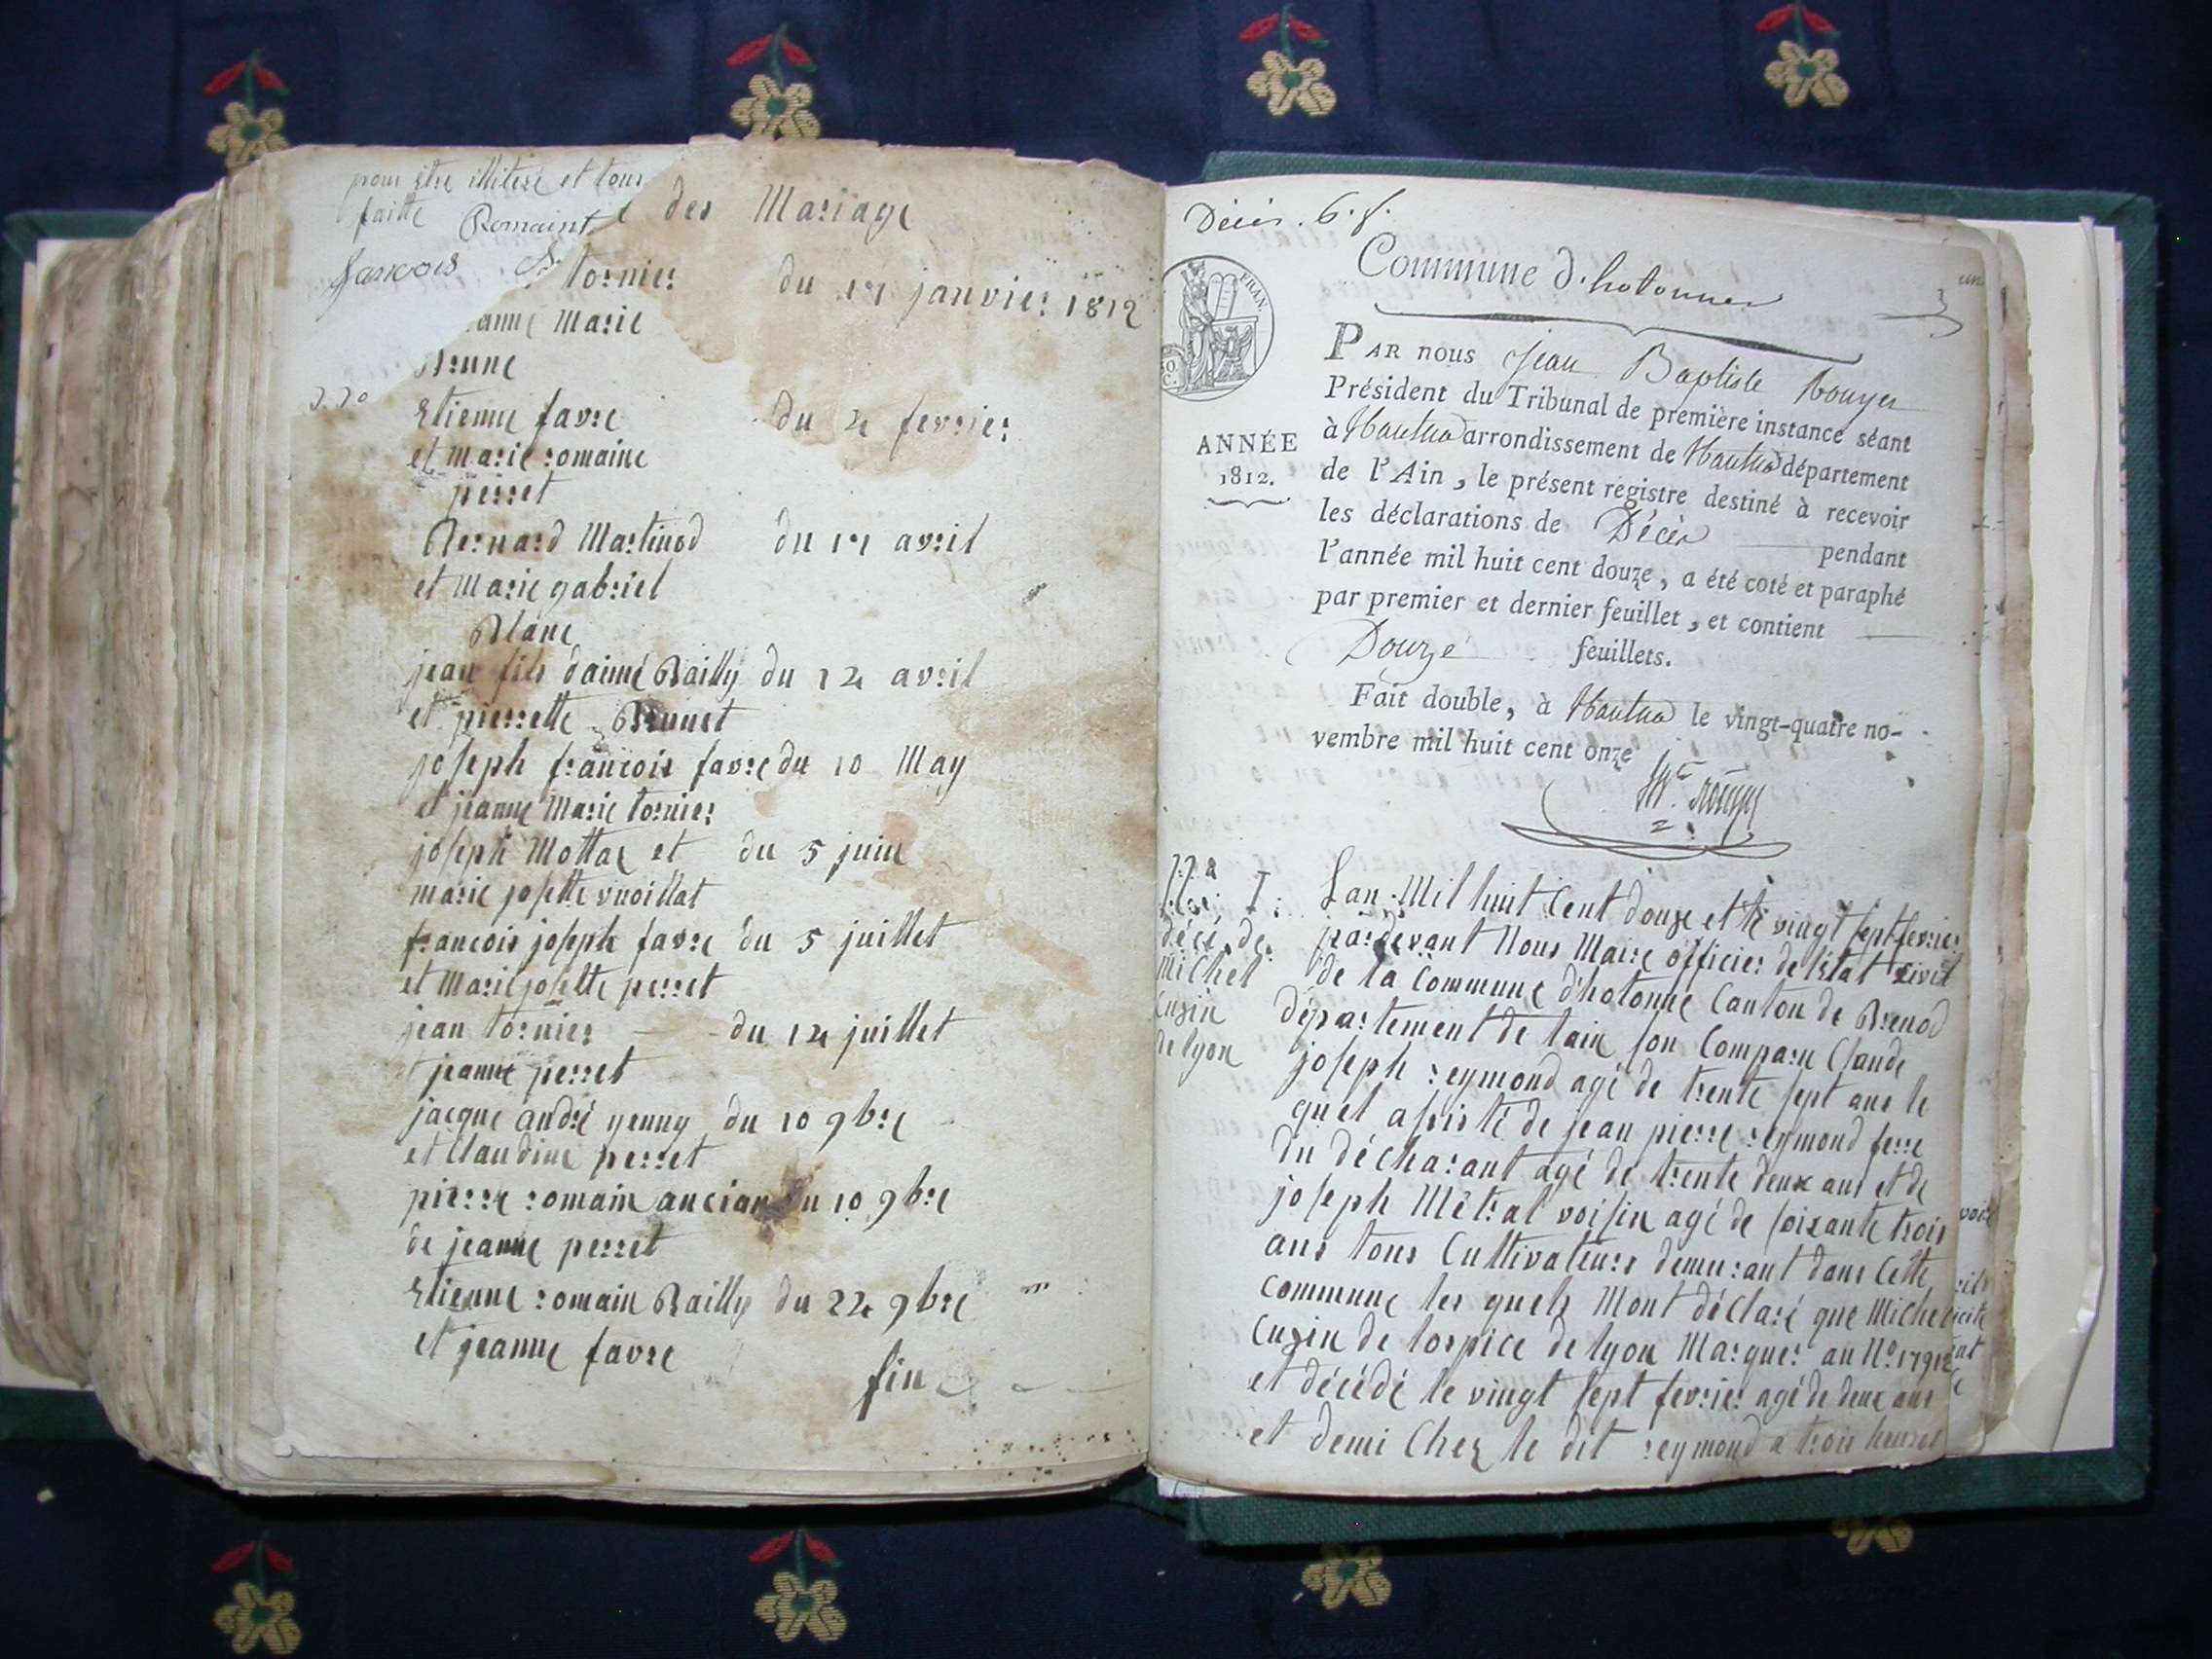 pour etre illiteré et tous
faitte Romaint
francois
des Mariage
tornier du 17 janvier 1812
anne Marie
Brune
Etienne favre du 2 fevrier
et marie romaine
perret
Bernard Martinod du 17 avril
et Marie gabriel
Blanc
jean fils daimé Bailly du 12 avril
et pierrette Brunet
joseph francois favre du 10 May
et jeanne Marie tornier
joseph Mottaz et du 5 juin
marie josette vuoillat
francois joseph favre du 5 juillet
et Marie josette perret
jean tornier du 12 juillet
jeanne perret
jacque andré genny du 10 9bre
et Claudine perret
pierre romain ancian du 10 9bre
de jeanne perret
Etienne romain Bailly du 22 9bre
et jeanne favre
fin
Décès. 6. f.
Commune d'hotonnes
FRAN.
ANNÉE
1812.
PAR nous Jean Baptiste Rouyer
Président du Tribunal de première instance séant
à Nantua arrondissement de Nantua département
de l'Ain, le présent registre destiné à recevoir
les déclarations de Décès pendant
l'année mil huit cent douze, a été coté et paraphé
par premier et dernier feuillet, et contient
Douze feuillets.
Fait double, à Nantua le vingt-quatre no-
vembre mil huit cent onze
déce de
Michel
Cuzin
de lyon
I. Lan Mil huit Cent douze et le vingt sept fevrier
pardevant Nous Maire officier de létat civil
de la Commune d'hotonne Canton de Brenod
département de lain son Comparu Claude
joseph reymond agé de trente sept ans le
quel assisté de jean pierre reymond ferre
du décharant agé de trente deux ans et de
joseph Métral voisin agé de soixante trois
ans tous Cultivateurs demeurant dans Cette
commune les quels Mont déclaré que Michel
Cuzin de lospice de lyon Marquer au No. 1791
et décédé le vingt sept fevrier agé de deux ans
et demi Chez le dit reymond a trois heures